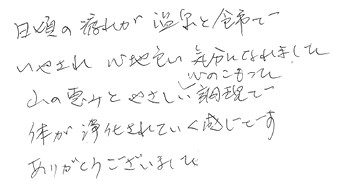 日頃の疲れが温泉と食事で
いやされ 心地良い気分になれました
心のこもった
山の恵みとやさしい調理で
体が浄化されていく感じです
ありがとうございました